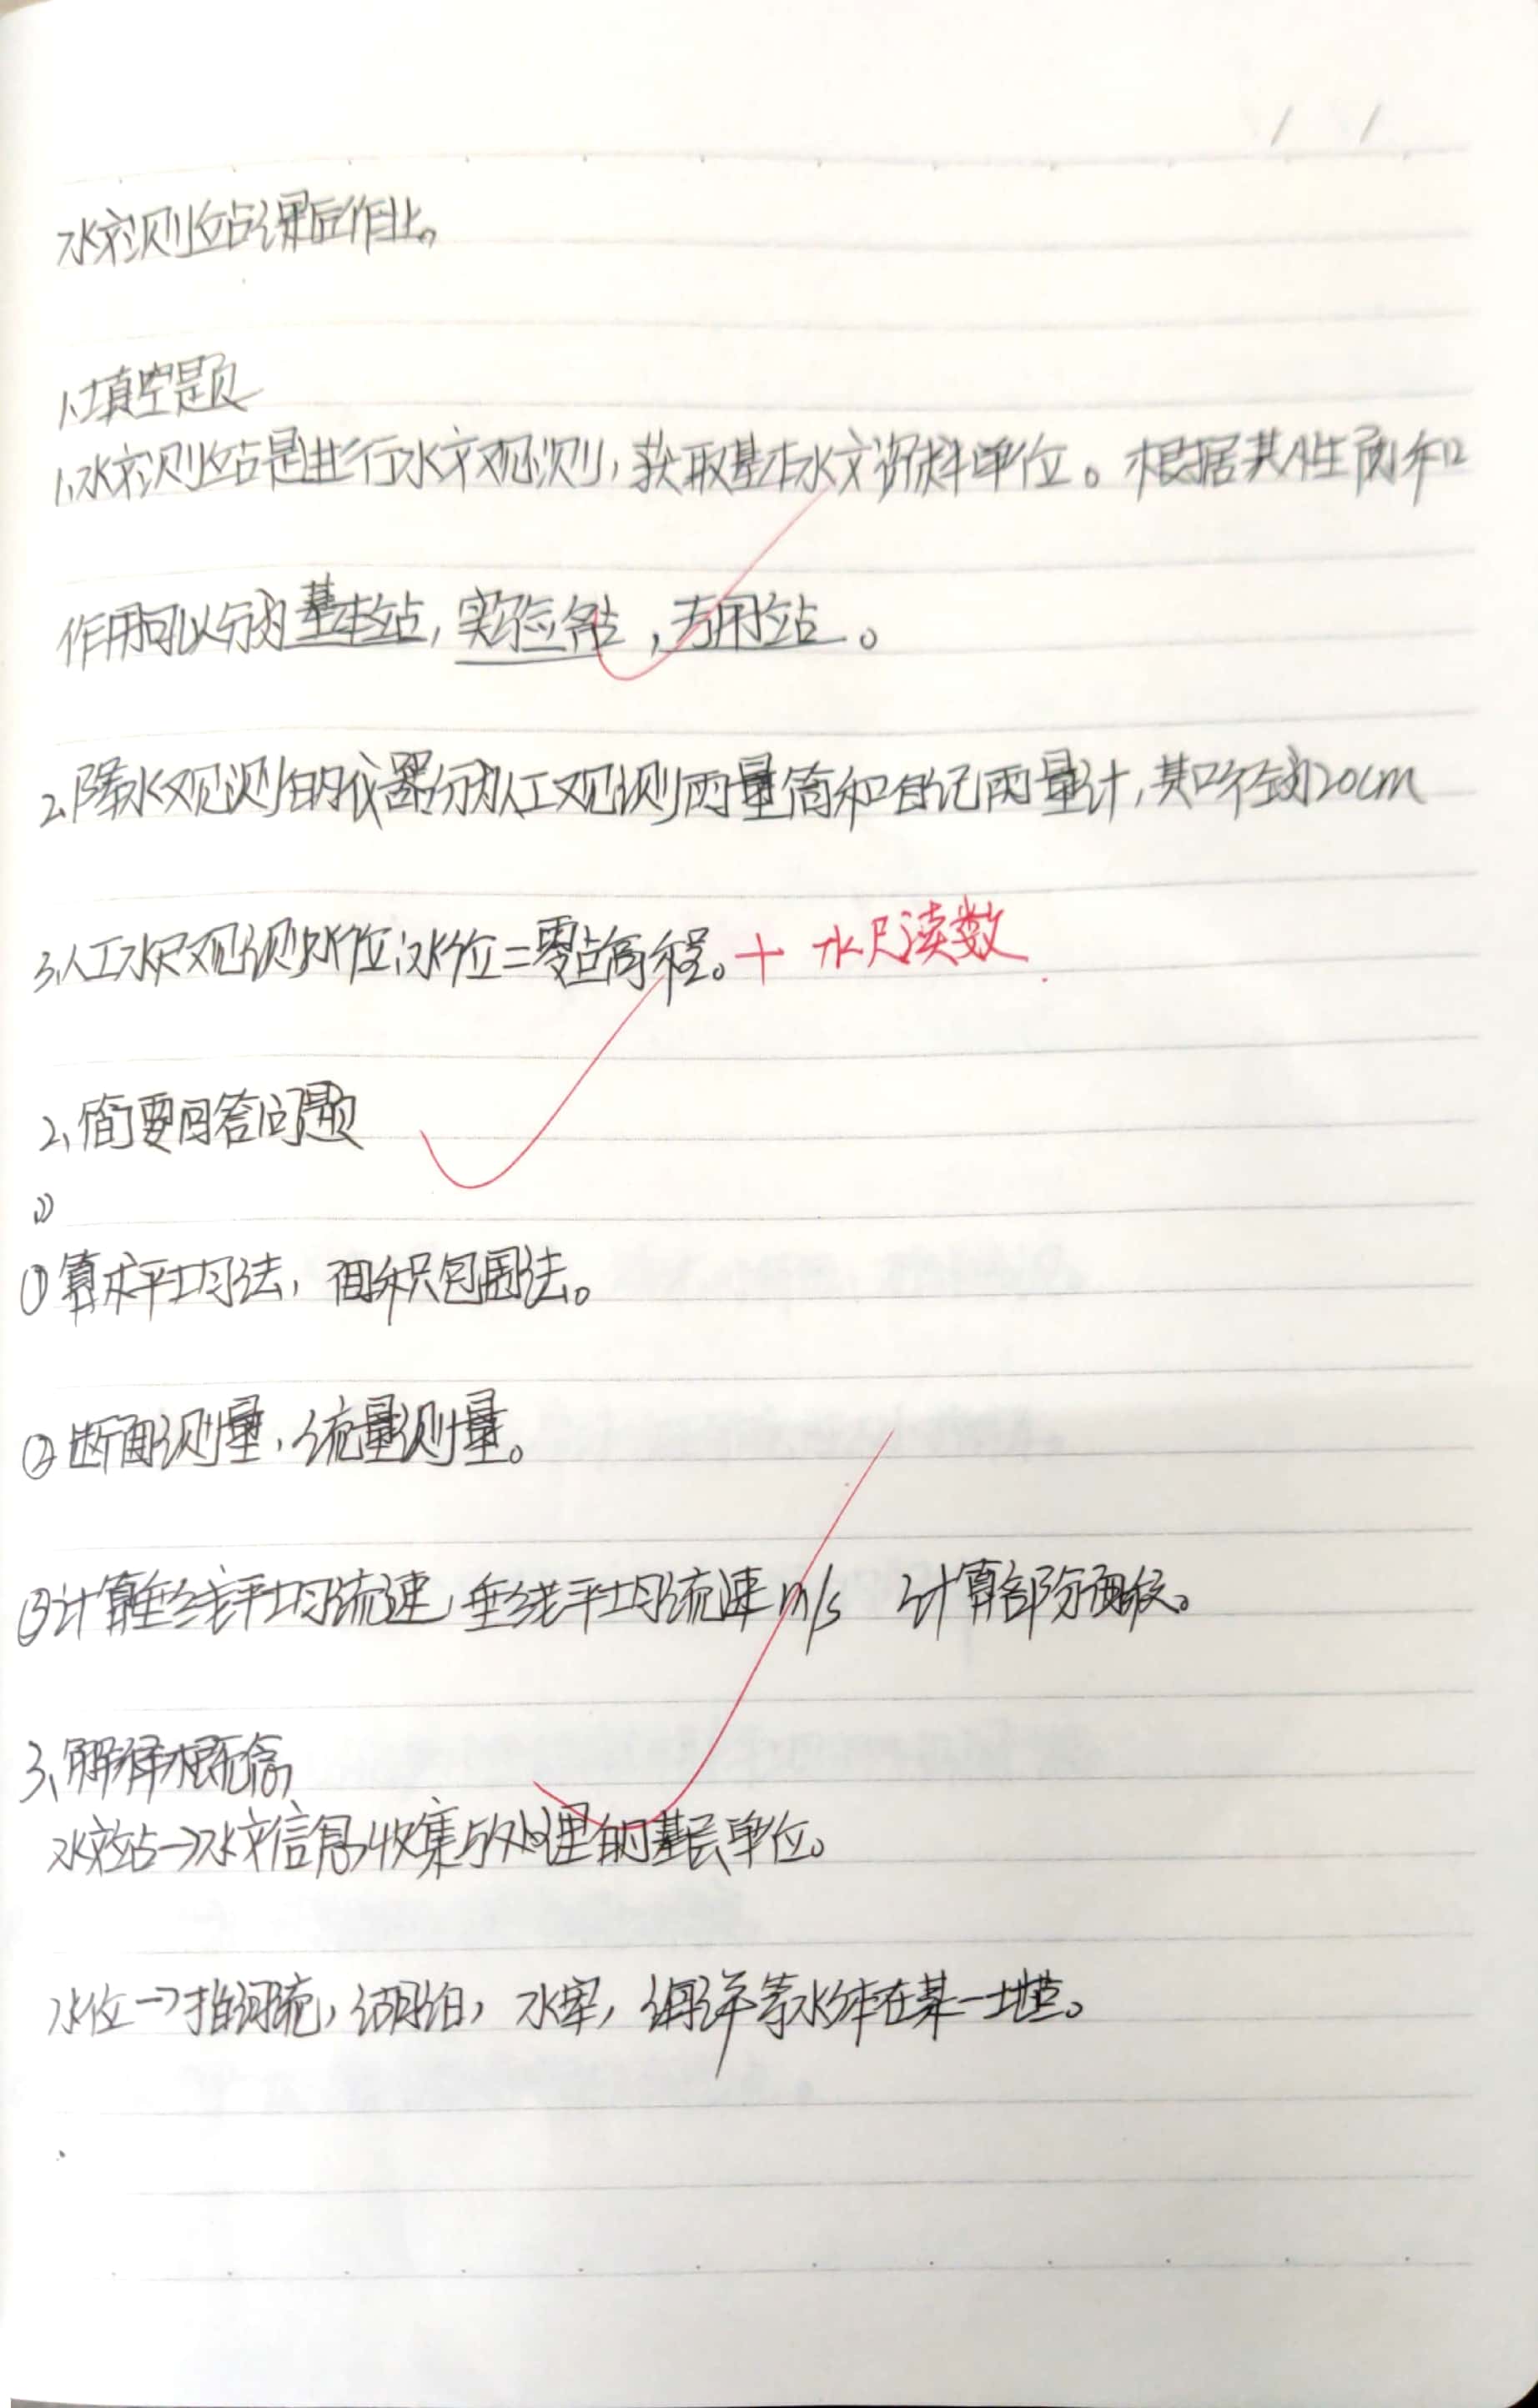 水文测站课后作业。
1、填空题
1、水文测站是进行水文观测,获取基本水文资料单位。根据其性质和
作用可以分为基本站,实验站,专用站。
2、降水观测的仪器分为人工观测雨量筒和自记雨量计,其口径为20cm
3、人工水尺观测水位:水位=零点高程。+ 水尺读数
2、简要回答问题
1)
①算术平均法,面积包围法。
②断面测量,流量测量。
③计算垂线平均流速,垂线平均流速m/s 计算部分面积。
3、解释概念
水文站→水文信息收集与处理的基层单位。
水位→指河流,湖泊,水库,海洋等水体在某一地点。